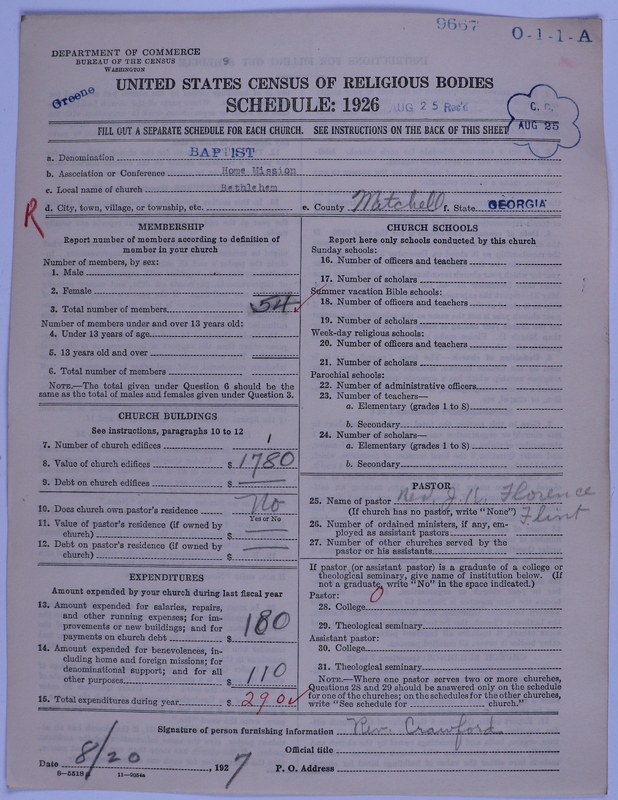 9667
O-1-1-A
DEPARTMENT OF COMMERCE
BUREAU OF THE CENSUS
WASHINGTON
9
Greene
UNITED STATES CENSUS OF RELIGIOUS BODIES
SCHEDULE: 1926
AUG 25 Rec'd
C. C.
AUG 25
FILL OUT A SEPARATE SCHEDULE FOR EACH CHURCH. SEE INSTRUCTIONS ON THE BACK OF THIS SHEET
a. Denomination BAPTIST
b. Association or Conference Home Mission
c. Local name of church Bethlehem
R
d. City, town, village, or township, etc. e. County Mitchell f. State GEORGIA
MEMBERSHIP
Report number of members according to definition of
member in your church
Number of members, by sex:
1. Male
2. Female
3. Total number of members 54
Number of members under and over 13 years old:
4. Under 13 years of age
5. 13 years old and over
6. Total number of members
NOTE.—The total given under Question 6 should be the
same as the total of males and females given under Question 3.
CHURCH BUILDINGS
See instructions, paragraphs 10 to 12
7. Number of church edifices 1
8. Value of church edifices $ 1780
9. Debt on church edifices $
10. Does church own pastor's residence No
Yes or No
11. Value of pastor's residence (if owned by
church) $
12. Debt on pastor's residence (if owned by
church) $
EXPENDITURES
Amount expended by your church during last fiscal year
13. Amount expended for salaries, repairs,
and other running expenses; for im-
provements or new buildings; and for
payments on church debt $ 180
14. Amount expended for benevolences, in-
cluding home and foreign missions; for
denominational support; and for all
other purposes $ 110
15. Total expenditures during year $ 290
CHURCH SCHOOLS
Report here only schools conducted by this church
Sunday schools:
16. Number of officers and teachers
17. Number of scholars
Summer vacation Bible schools:
18. Number of officers and teachers
19. Number of scholars
Week-day religious schools:
20. Number of officers and teachers
21. Number of scholars
Parochial schools:
22. Number of administrative officers
23. Number of teachers—
a. Elementary (grades 1 to 8)
b. Secondary
24. Number of scholars—
a. Elementary (grades 1 to 8)
b. Secondary
PASTOR
25. Name of pastor Rev. J. H. Florence
(If church has no pastor, write "None") Flint
26. Number of ordained ministers, if any, em-
ployed as assistant pastors
27. Number of other churches served by the
pastor or his assistants
If pastor (or assistant pastor) is a graduate of a college or
theological seminary, give name of institution below. (If
not a graduate, write "No" in the space indicated.)
Pastor: 0
28. College
29. Theological seminary
Assistant pastor:
30. College
31. Theological seminary
NOTE.—Where one pastor serves two or more churches,
Questions 28 and 29 should be answered only on the schedule
for one of the churches; on the schedules for the other churches,
write "See schedule for church."
Signature of person furnishing information Rev. Crawford
Official title
Date 8/20, 1927 P. O. Address
8—5518 a 11—9054a